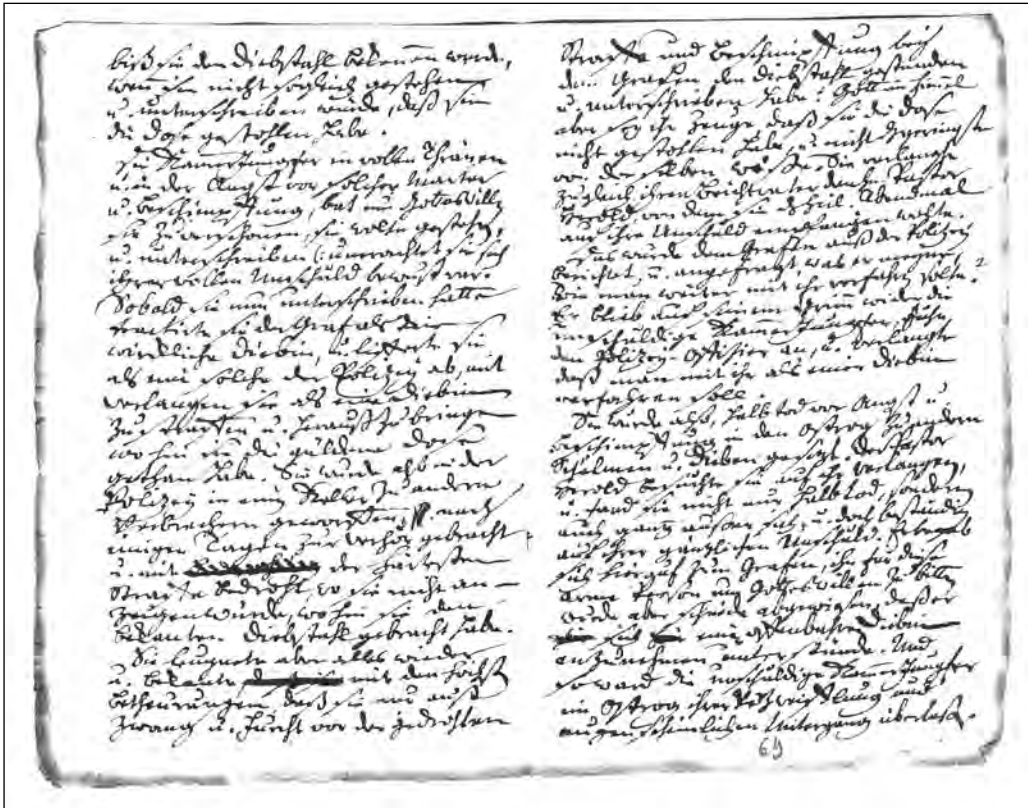 biß sie den Diebstahl bekennen werde,
wenn sie nicht sogleich gestehen
u. unterschreiben würde, daß sie
die Dose gestollen habe.
Die Kammerjungfer in vollen Thränen
u. in der Angst vor solcher Marter
u. Beschimpffung, bat um Gotteswillen
sie zu verschonen, sie wolte gestehen,
u. unterschreiben (: unerachtet sie sich
ihrer vollen Unschuld bewust war.
Sobald sie nun unterschrieben hatte
tractirte sie der Graf als eine
würckliche Diebin, u. lifferte sie
als eine solche der Polizey ab, mit
verlangen sie als Diebin
zu straffen u. herauszubringen
wo hin sie die güldene Dose
gethan habe. Sie wurde also in der
Polizey in einen Keller zu andern
Verbrechern geworffen, nach
einigen Tagen zur Verhör gebracht
u. mit der härtesten
Straffe bedroht, wo sie nicht an-
zeugen würde, wo hin sie den
bekanten Diebstahl gebracht habe.
Sie leugnete aber alles wieder
u. bekante mit den höchsten
betheurungen daß sie nur auß
Zwang u. Furcht vor der gedrohten
Straffe und Beschimpffung bey
dem Grafen den Diebstahl gestanden
u. unterschrieben habe: Gott im Himmel
aber sey ihr Zeuge daß sie die Dose
nicht gestollen habe, u. nicht das geringste
von derselben wisse. Sie verlangte
zugleich ihren Beichtvater den Hn. Pastor
Herold, von dem sie d. heil. Abendmal
auf ihre Unschuld empfangen wolte.
Das wurde dem Grafen auß der Polizey
berichtet, u. angefragt, was er meyne,
wie man weiter mit ihr verfahren solte?
Er blieb auf seinem Grimm wider die
unschuldige Kammerjungfer, fuhr
den Polizey-Offizier an, u. verlangte
daß man mit ihr als einer Diebin
verfahren soll.
Sie wurde also, halb tod vor Angst u.
Beschimpffung in den Ostrog zu andern
Schelmen u. Dieben gesetzt. Der Pastor
Herold besuchte sie auf ihr verlangen,
u. fand sie nicht nur halb tod, sondern
auch ganz ausser sich, u. doch beständig
auf ihrer gänzlichen Unschuld. Er begab
sich hierauf zum Grafen, ihn für diese
arme Person um Gotteswillen zu bitten
wurde aber schnöde abgewiesen, daß er
sich einer offenbahren Diebin
anzunehmen unterstünde. Und
so ward die unschuldige Kammerjungfer
im Ostrog ihrer Verzweifflung und
augenscheinlichen Untergang überlaßen.
69